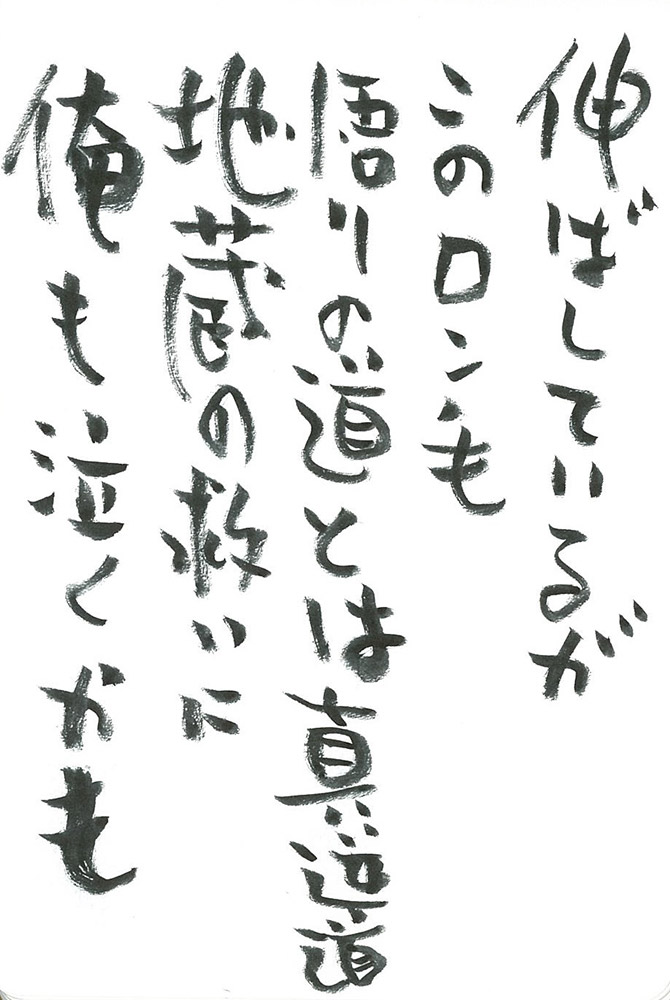 伸ばしているが
このロン毛
悟りの道とは真逆道
地蔵の救いに
俺も泣くかも